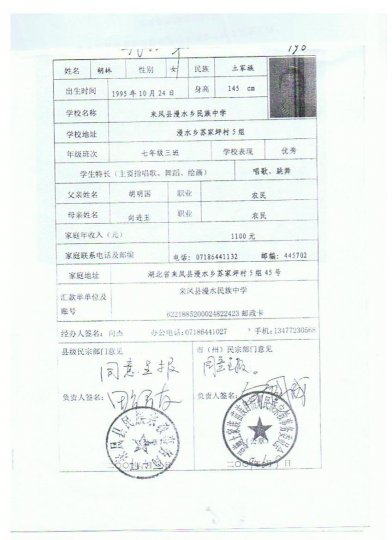 190
姓名 胡林 性别 女 民族 土家族
出生时间 1995年10月24日 身高 145 cm
学校名称 来凤县漫水乡民族中学
学校地址 漫水乡苏家坪村5组
年级班次 七年级三班 学校表现 优秀
学生特长（主要指唱歌、舞蹈、绘画） 唱歌、跳舞
父亲姓名 胡明国 职业 农民
母亲姓名 向进玉 职业 农民
家庭年收入（元） 1100元
家庭联系电话及邮编 电话：07186441132 邮编：445702
家庭地址 湖北省来凤县漫水乡苏家坪村5组45号
汇款单单位及账号 来凤县漫水民族中学
6221885200024822423 邮政卡
经办人签名：向杰 办公电话:07186441027 手机:13477230568
县级民宗部门意见 市（州）民宗部门意见
同意呈报 同意呈报。
负责人签名： 负责人签名：